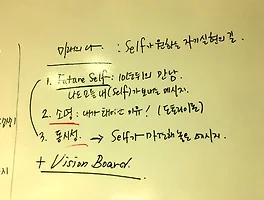 미래의 나 : Self가 원하는 자기실현의 길.
1. Future Self : 10년뒤의 만남
나도 모르는 내(Self)가 보내는 메시지.
2. 소명 : 내가 태어난 이유! (도토리이론)
3. 동시성. → Self가 마련해 놓은 메시지.
+ Vision Board.
지